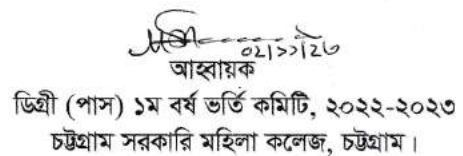 ০২/১১/২৩
আহবায়ক
ডিগ্রী (পাস) ১ম বর্ষ ভর্তি কমিটি, ২০২২-২০২৩
চট্টগ্রাম সরকারি মহিলা কলেজ, চট্টগ্রাম।